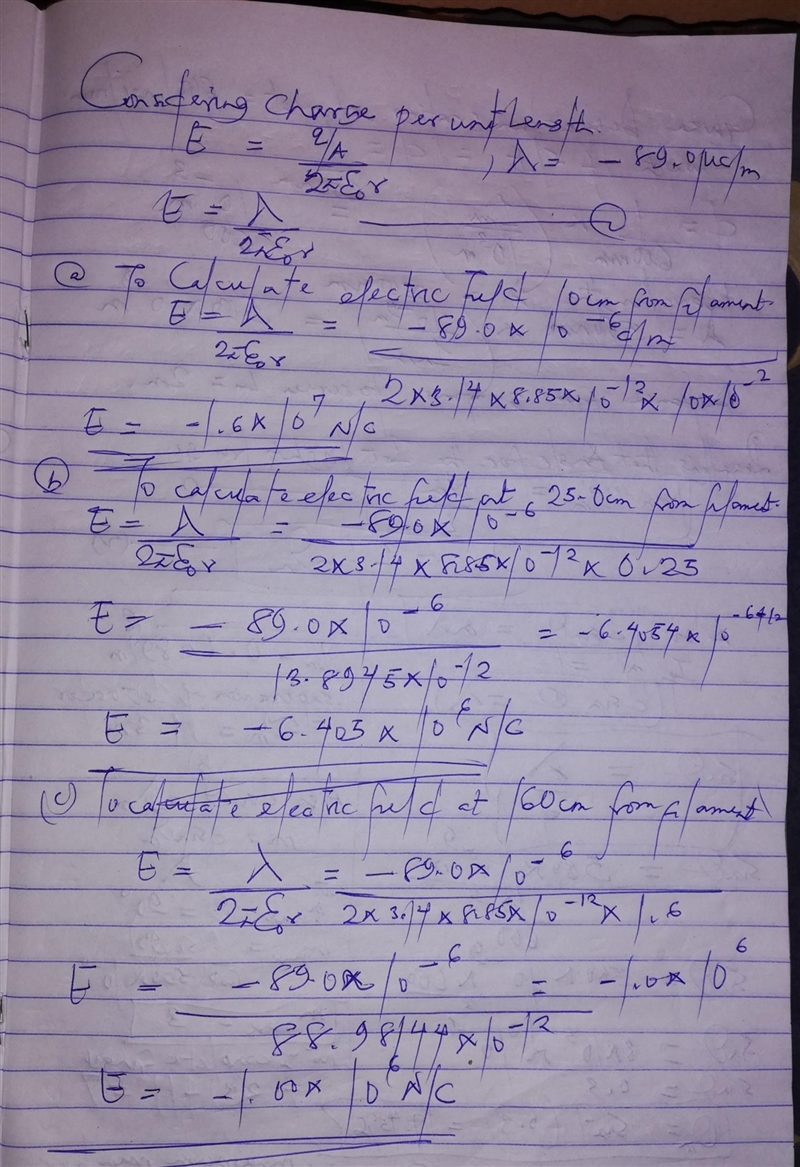 Considering Charge per unit Length.
E = q/A / 2πε₀r , λ = -89.0μC/m
E = λ / 2πε₀r
(a) To Calculate electric field 10cm from filament.
E = λ / 2πε₀r = -89.0 x 10^-6 C/m / 2x3.14x8.85x10^-12x10x10^-2
E = -1.6x10^7 N/C
(b) To calculate electric field at 25.0cm from filament.
E = λ / 2πε₀r = -89.0x10^-6 / 2x3.14x8.85x10^-12x0.25
E = -89.0x10^-6 / 13.8945x10^-12 = -6.4054x10^-6+12
E = -6.405x10^6 N/C
(c) To calculate electric field at 160cm from filament
E = λ / 2πε₀r = -89.0x10^-6 / 2x3.14x8.85x10^-12x1.6
E = -89.0x10^-6 / 88.98144x10^-12 = -1.0x10^6
E = -1.00x10^6 N/C